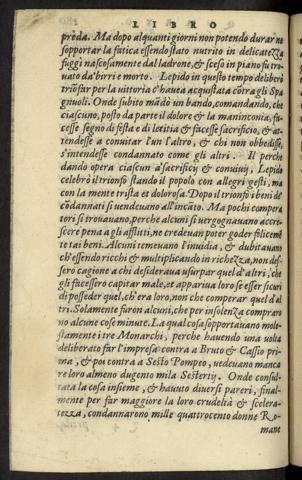 LIBRO
preda. Ma dopo alquanti giorni non potendo durar ne
sopportar la fatica essendo stato nutrito in delicatezza
fuggì nascosamente dal ladrone, & sceso in piano fu tro
uato da' birri e morto. Lepido in questo tempo deliberò
triōfar per la vittoria c'hauea acquistata cōtra gli Spa
gnuoli. Onde subito mādò un bando, comandando, che
ciascuno, posto da parte il dolore & la maninconia, fa-
cesse segno di festa e di letitia & facesse sacrificio, & at-
tendesse a conuitar l'un l'altro, & chi non obbedisse,
s'intendesse condannato come gli altri. Il perche
dando opera ciascun a' sacrificij & conuiuij, Lepido
celebrò il triōfo stando il popolo con allegri gesti, ma
con la mente trista et dolorosa. Dopo il triōfo i beni de'
cōdannati si uendeuano all'incāto. Ma pochi compera
tori si trouauano, perche alcuni si uergognauano accre-
scere pena a gli afflitti, ne credeuan poter goder felicemē
te tai beni. Alcuni temeuano l'inuidia, & dubitauan
ch'essendo ricchi & multiplicando in richezza, non des-
sero cagione a chi desideraua usurpar quel d'altri, che
gli facessero capitar male, et appariua loro fe esser sicuri
di posseder quel, ch'era loro, non che comperar quel d'al
tri. Solamente furon alcuni, che per insolenza comprar-
no alcune cose minute. La qual cosa sopportauano mole-
stamente i tre Monarchi, perche hauendo una uolta
deliberato far l'impresa contra a Bruto & Cassio pri-
ma, & poi contra a Sesto Pompeo, uedeuano manca
re loro almeno dugento mila Sestertij. Onde consul-
tata la cosa insieme, & hauuto diuersi pareri, final-
mente per far maggiore la loro crudeltà & scelera-
tezza, condannarono mille quattrocento donne Ro-
mane